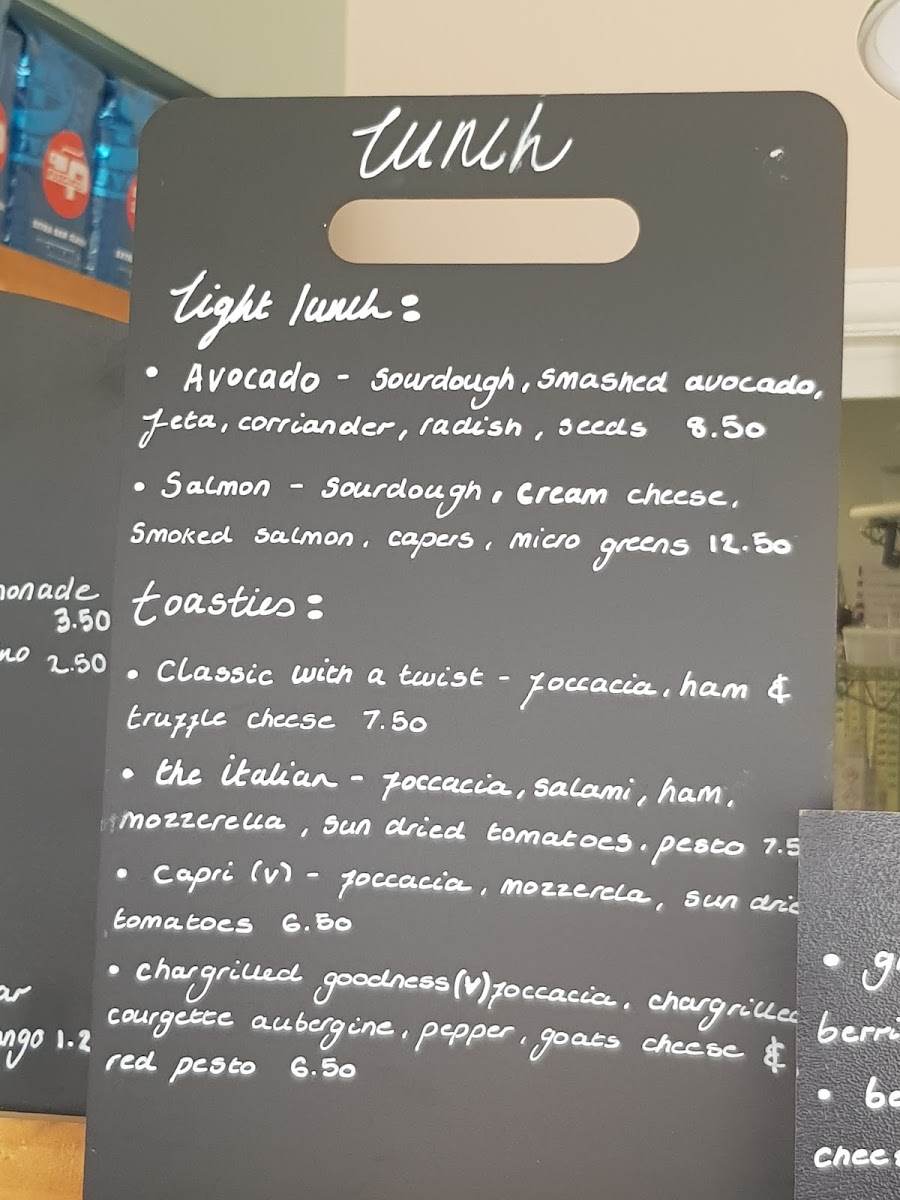 Lunch
Light lunch:
• Avocado - sourdough, smashed avocado,
feta, corriander, radish, seeds 8.50
• Salmon - sourdough, cream cheese,
smoked salmon, capers, micro greens 12.50
toasties:
• Classic with a twist - foccacia, ham &
truffle cheese 7.50
• the italian - foccacia, salami, ham,
mozzerella, sun dried tomatoes, pesto 7.5
• Capri (v) - foccacia, mozzerela, sun drie
tomatoes 6.50
• chargrilled goodness (v) foccacia, chargrilled
courgette aubergine, pepper, goats cheese &
red pesto 6.50
monade
3.50
no 2.50
ar
ngo 1.2
• g
berri
• be
chees